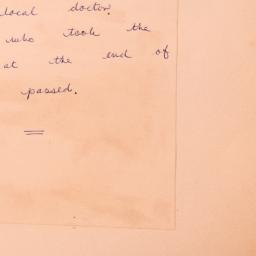 local doctor.
who took the
at the end of
passed.